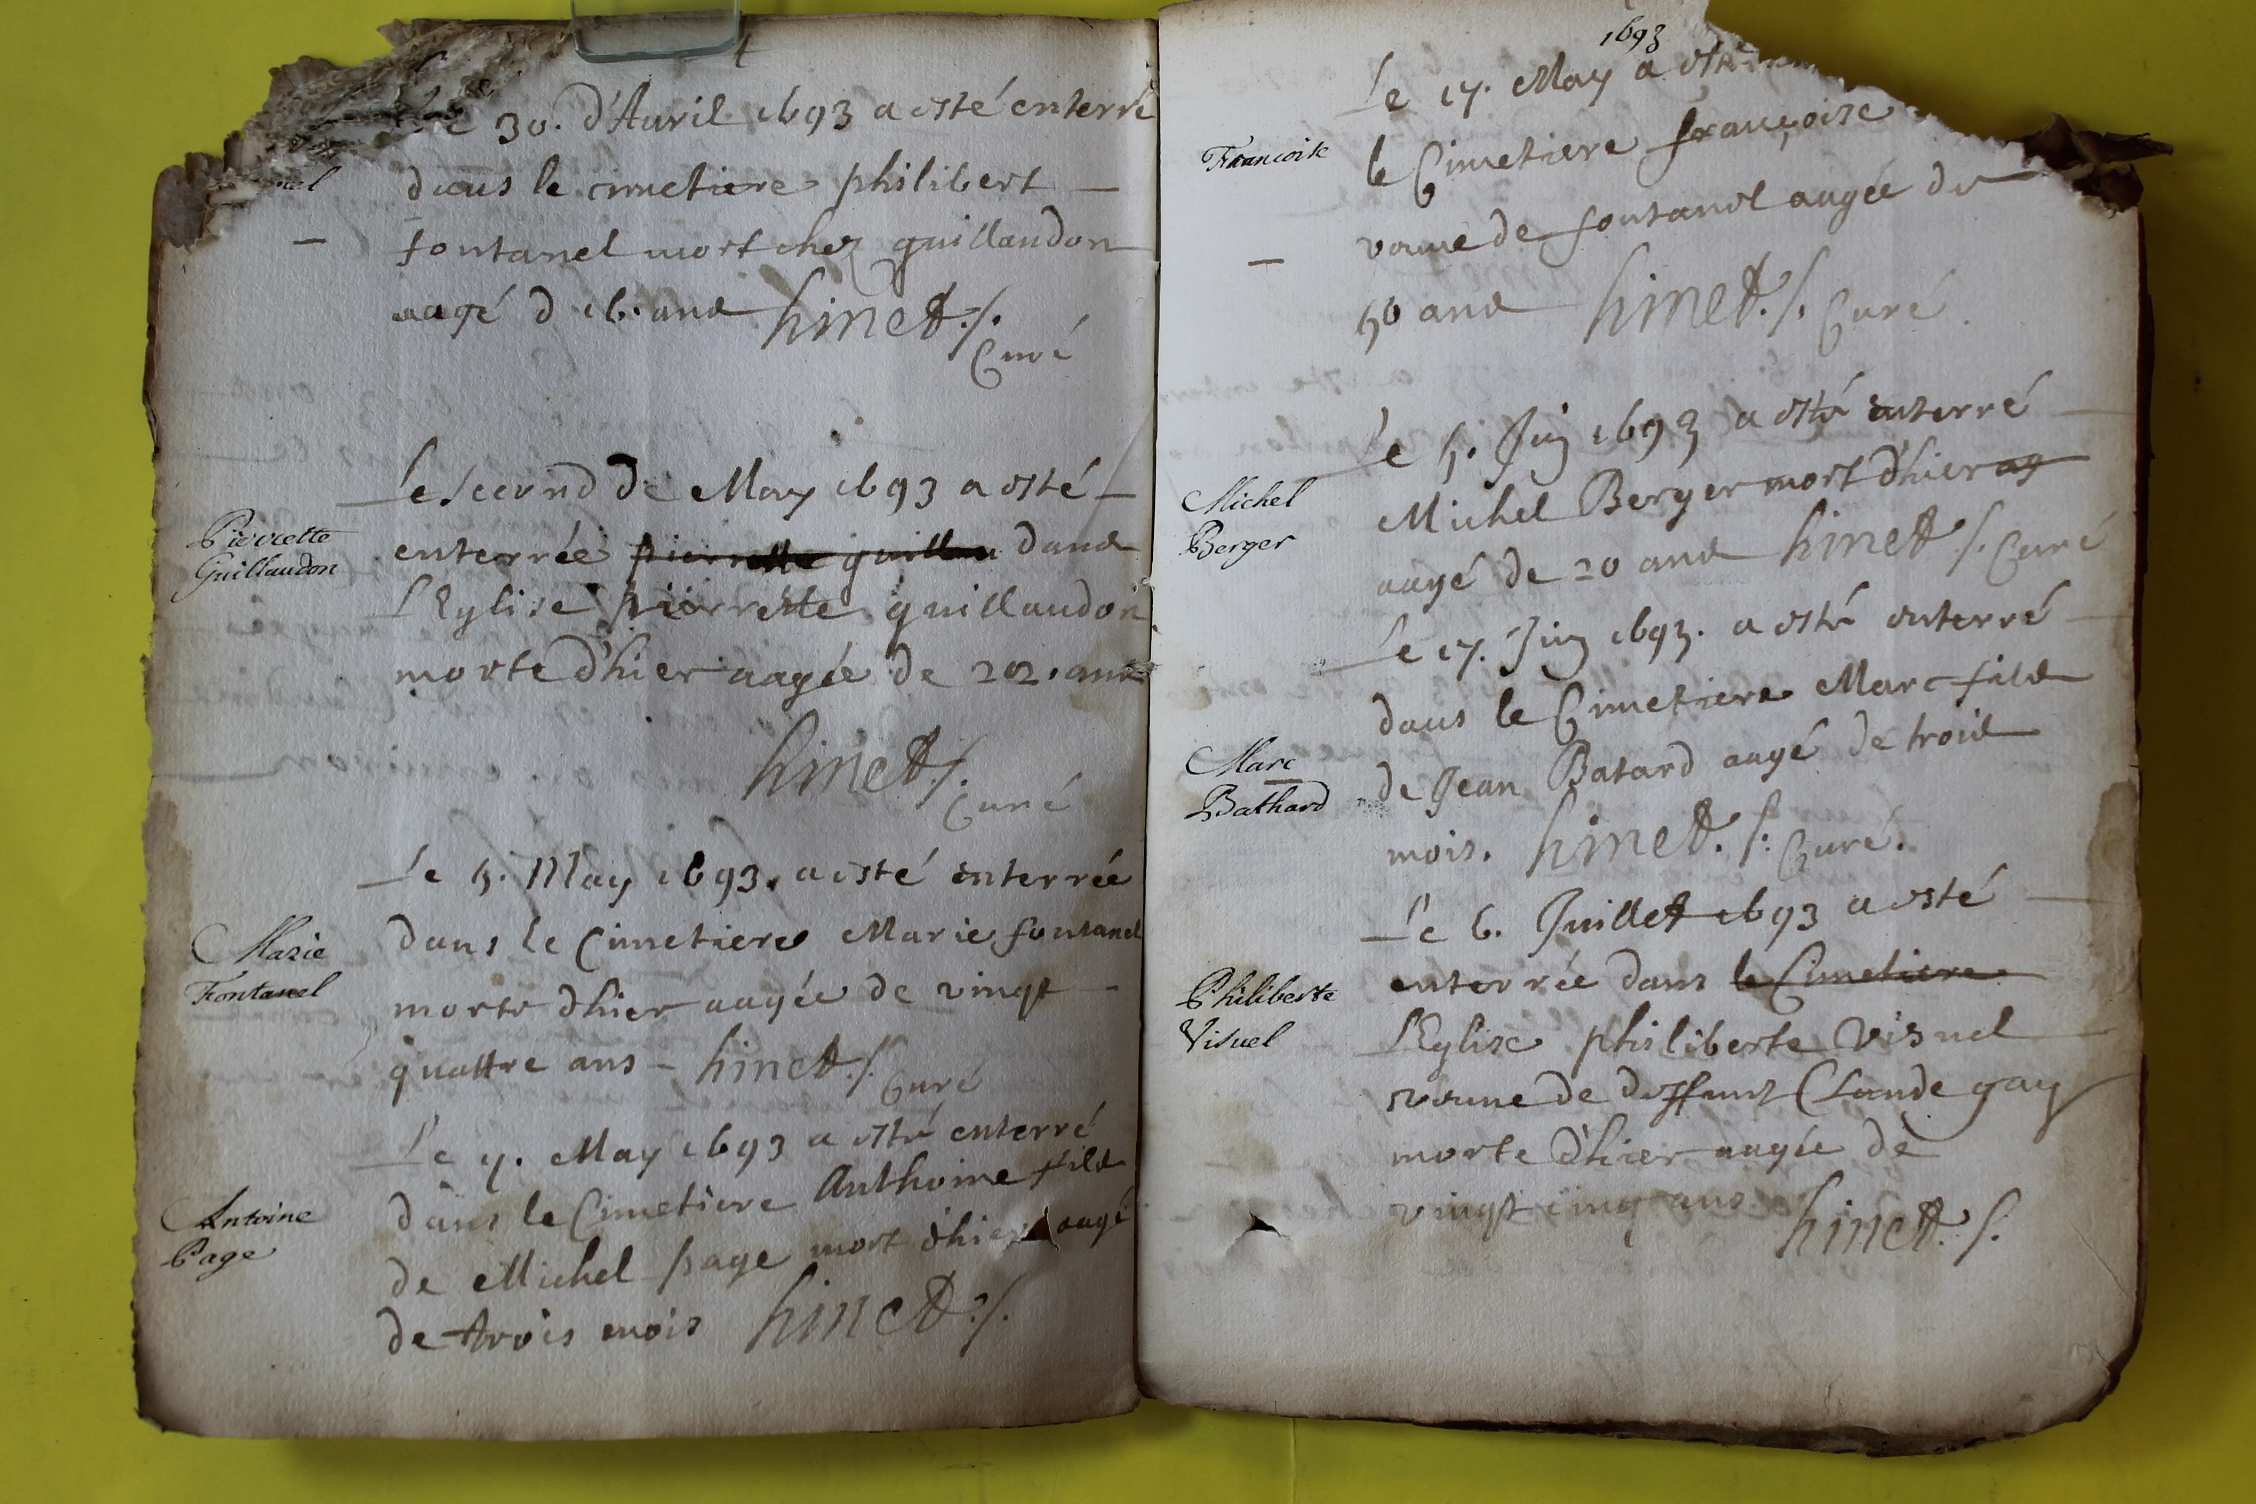 Le 30. d'Auril 1693 a esté enterré
nel
dans le cimetiere philibert
fontanel mort chez guillaudon
aagé d 16. ans hinet./.
Curé
Le second de May 1693 a esté
Pierrette
Guillaudon
enterrée pierrette guillau dans
L'Eglise pierrette guillaudon
morte d'hier aagée de 22. ans
hinet./.
Curé
Le 5. May 1693. a esté enterrée
Marie
Fontanel
dans le Cimetiere Marie fontanel
morte d'hier aagée de vingt
quattre ans - hinet./.
Curé
Le 7. May 1693 a esté enterré
Antoine
Page
dans le Cimetiere Anthoine fils
de Michel page mort d'hier aagé
de trois mois hinet./.
1693
Le 17. May a esté
Francoise
le Cimetiere françoise
veuue de fontanel aagée de
50 ans hinet./. Curé
Le 5. Juin 1693 a esté enterré
Michel
Berger
Michel Berger mort d'hier ag
aagé de 20 ans hinet./. Curé
Le 17. Juin 1693. a esté enterré
dans le Cimetiere Marc fils
Marc
Bathard
de Jean Batard aagé de trois
mois. hinet./. Curé.
Le 6. Juillet 1693 a esté
Philiberte
Visuel
enterrée dans le Cimetiere
L'Eglise philiberte Visuel
veuue de deffunt Claude gay
morte d'hier aagée de
vingt cinq ans hinet./.